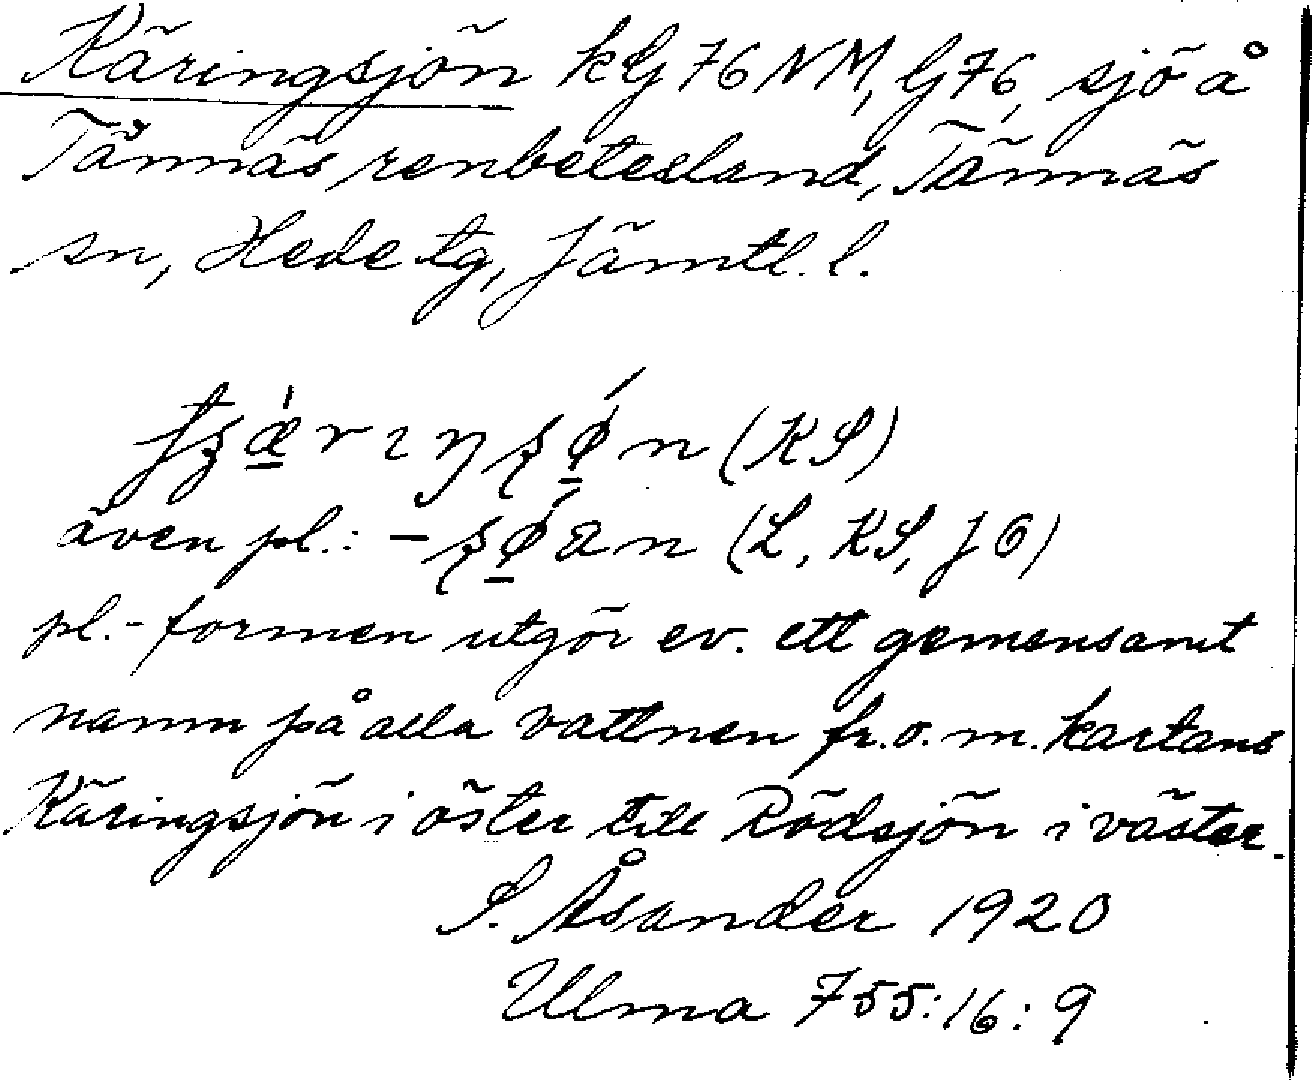 Käringsjön kG 76 NM, G 76, sjö å
Tännäs renbetesland, Tännäs
sn, Hede tg, Jämtl. l.
(KS)
även pl.: (L, KS, JÖ)
pl.-formen utgör ev. ett gemensamt
namn på alla vattnen fr.o.m. kartans
Käringsjön i öster till Rödsjön i väster.
S. Åsander 1920
Ulma 755:16:9